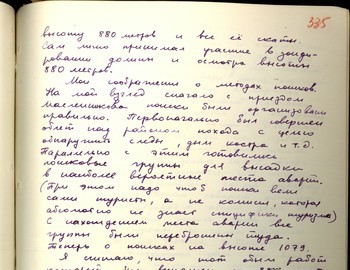 335
высоту 880 метров и все её скаты.
Сам лично принимал участие в зонди-
ровании долины и осмотра высоты
880 метров.
Мои соображения о методах поисков.
На мой взгляд сначала с приездом
Масленникова поиски были организованы
правильно. Первоначально был совершен
облет над районом похода с целью
обнаружить следы, дым костра и т.д.
Параллельно с этим готовились
поисковые группы для высадки
в наиболее вероятные места аварии.
(При этом надо чтоб поиски вели
сами туристы, а не комиссии, которая
абсолютно не знает специфики туризма)
С нахождением места аварии все
группы были переброшены туда.
Теперь о поисках на высоте 1079.
Я считаю, что тот объем работ